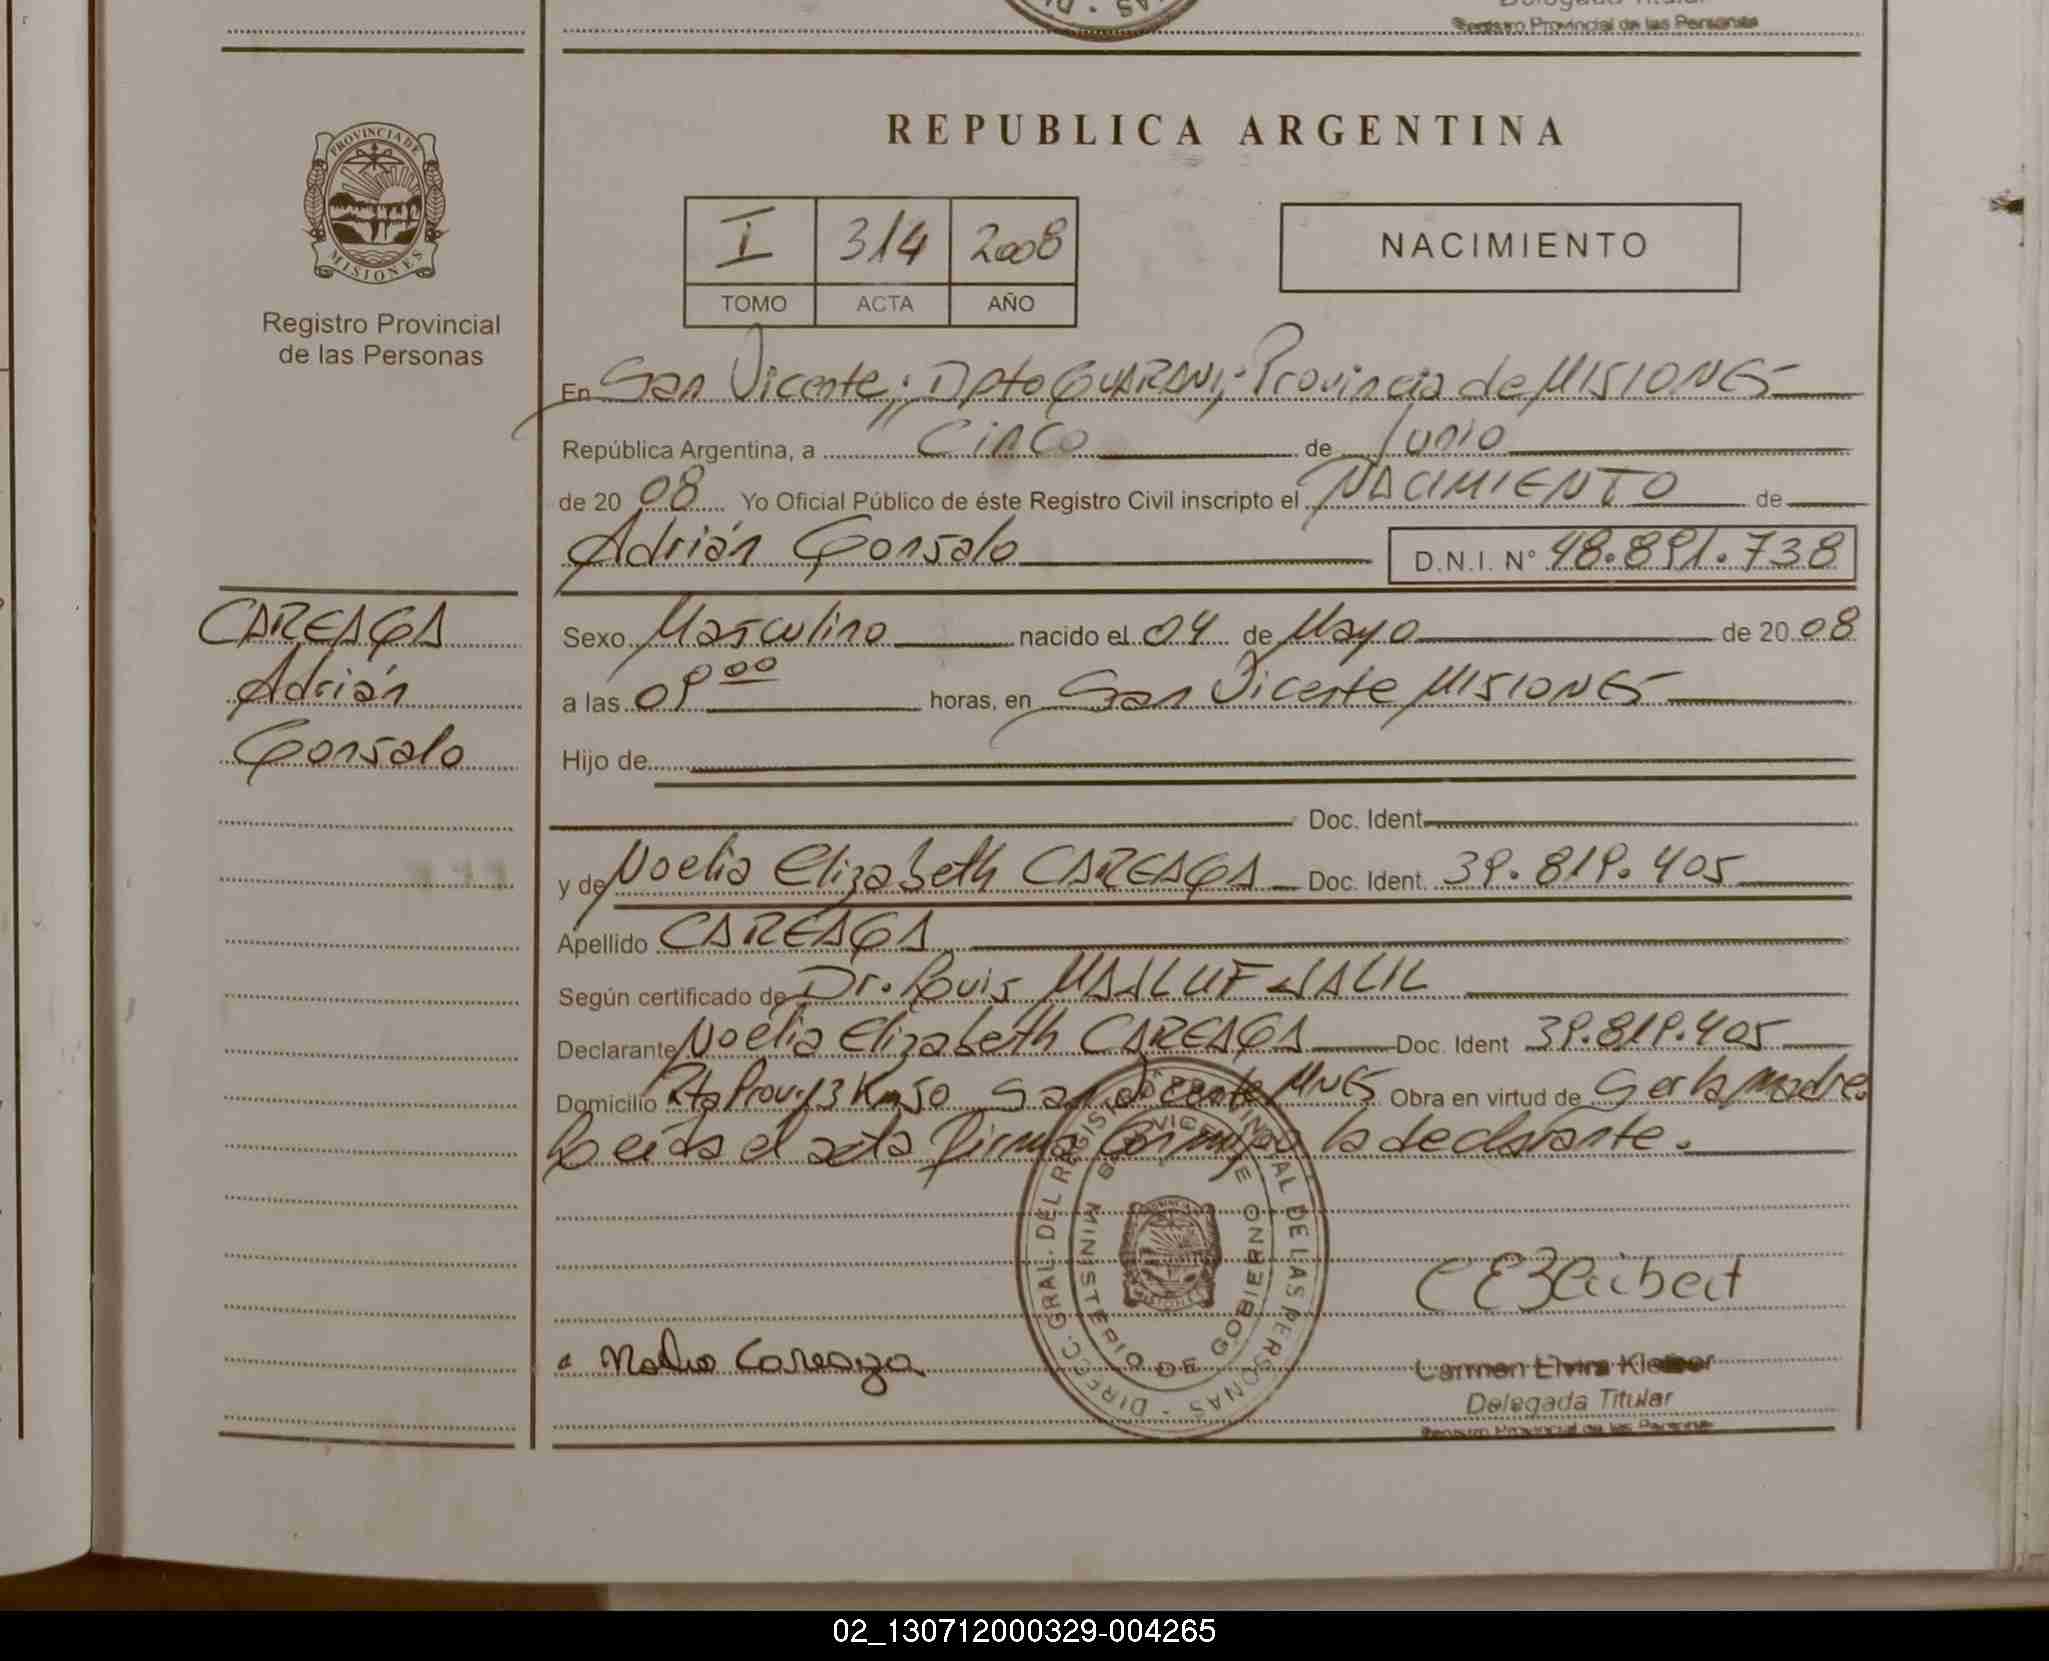 Delegada Titular
Registro Provincial de las Personas
PROVINCIA DE
MISIONES
Registro Provincial
de las Personas
REPUBLICA ARGENTINA
I 314 2008
TOMO ACTA AÑO
NACIMIENTO
En San Vicente; Dpto GUARANI; Provincia de MISIONES
República Argentina, a Cinco de Junio
de 20 08 Yo Oficial Público de éste Registro Civil inscripto el NACIMIENTO de
Adrián Gonsalo D.N.I. Nº 48.891.738
CAREAGA
Adrián
Gonsalo
Sexo Masculino nacido el 04 de Mayo de 20 08
a las 09 00 horas, en San Vicente MISIONES
Hijo de
Doc. Ident
y de Noelia Elizabeth CAREAGA Doc. Ident. 39.819.405
Apellido CAREAGA
Según certificado de Dr. Louis MAALUF JALIL
Declarante Noelia Elizabeth CAREAGA Doc. Ident 39.819.405
Domicilio Rta Prov. 13 Km 50 San Vicente MNES Obra en virtud de Ser la madre
Leída el acta firma conmigo la declarante.
DIREC. GRAL. DEL REGISTRO PROVINCIAL DE LAS PERSONAS
MINISTERIO DE GOBIERNO
MISIONES
Noelia Careaga
Carmen Elvira
Delegada Titular
Registro Provincial de las Personas
02_130712000329-004265